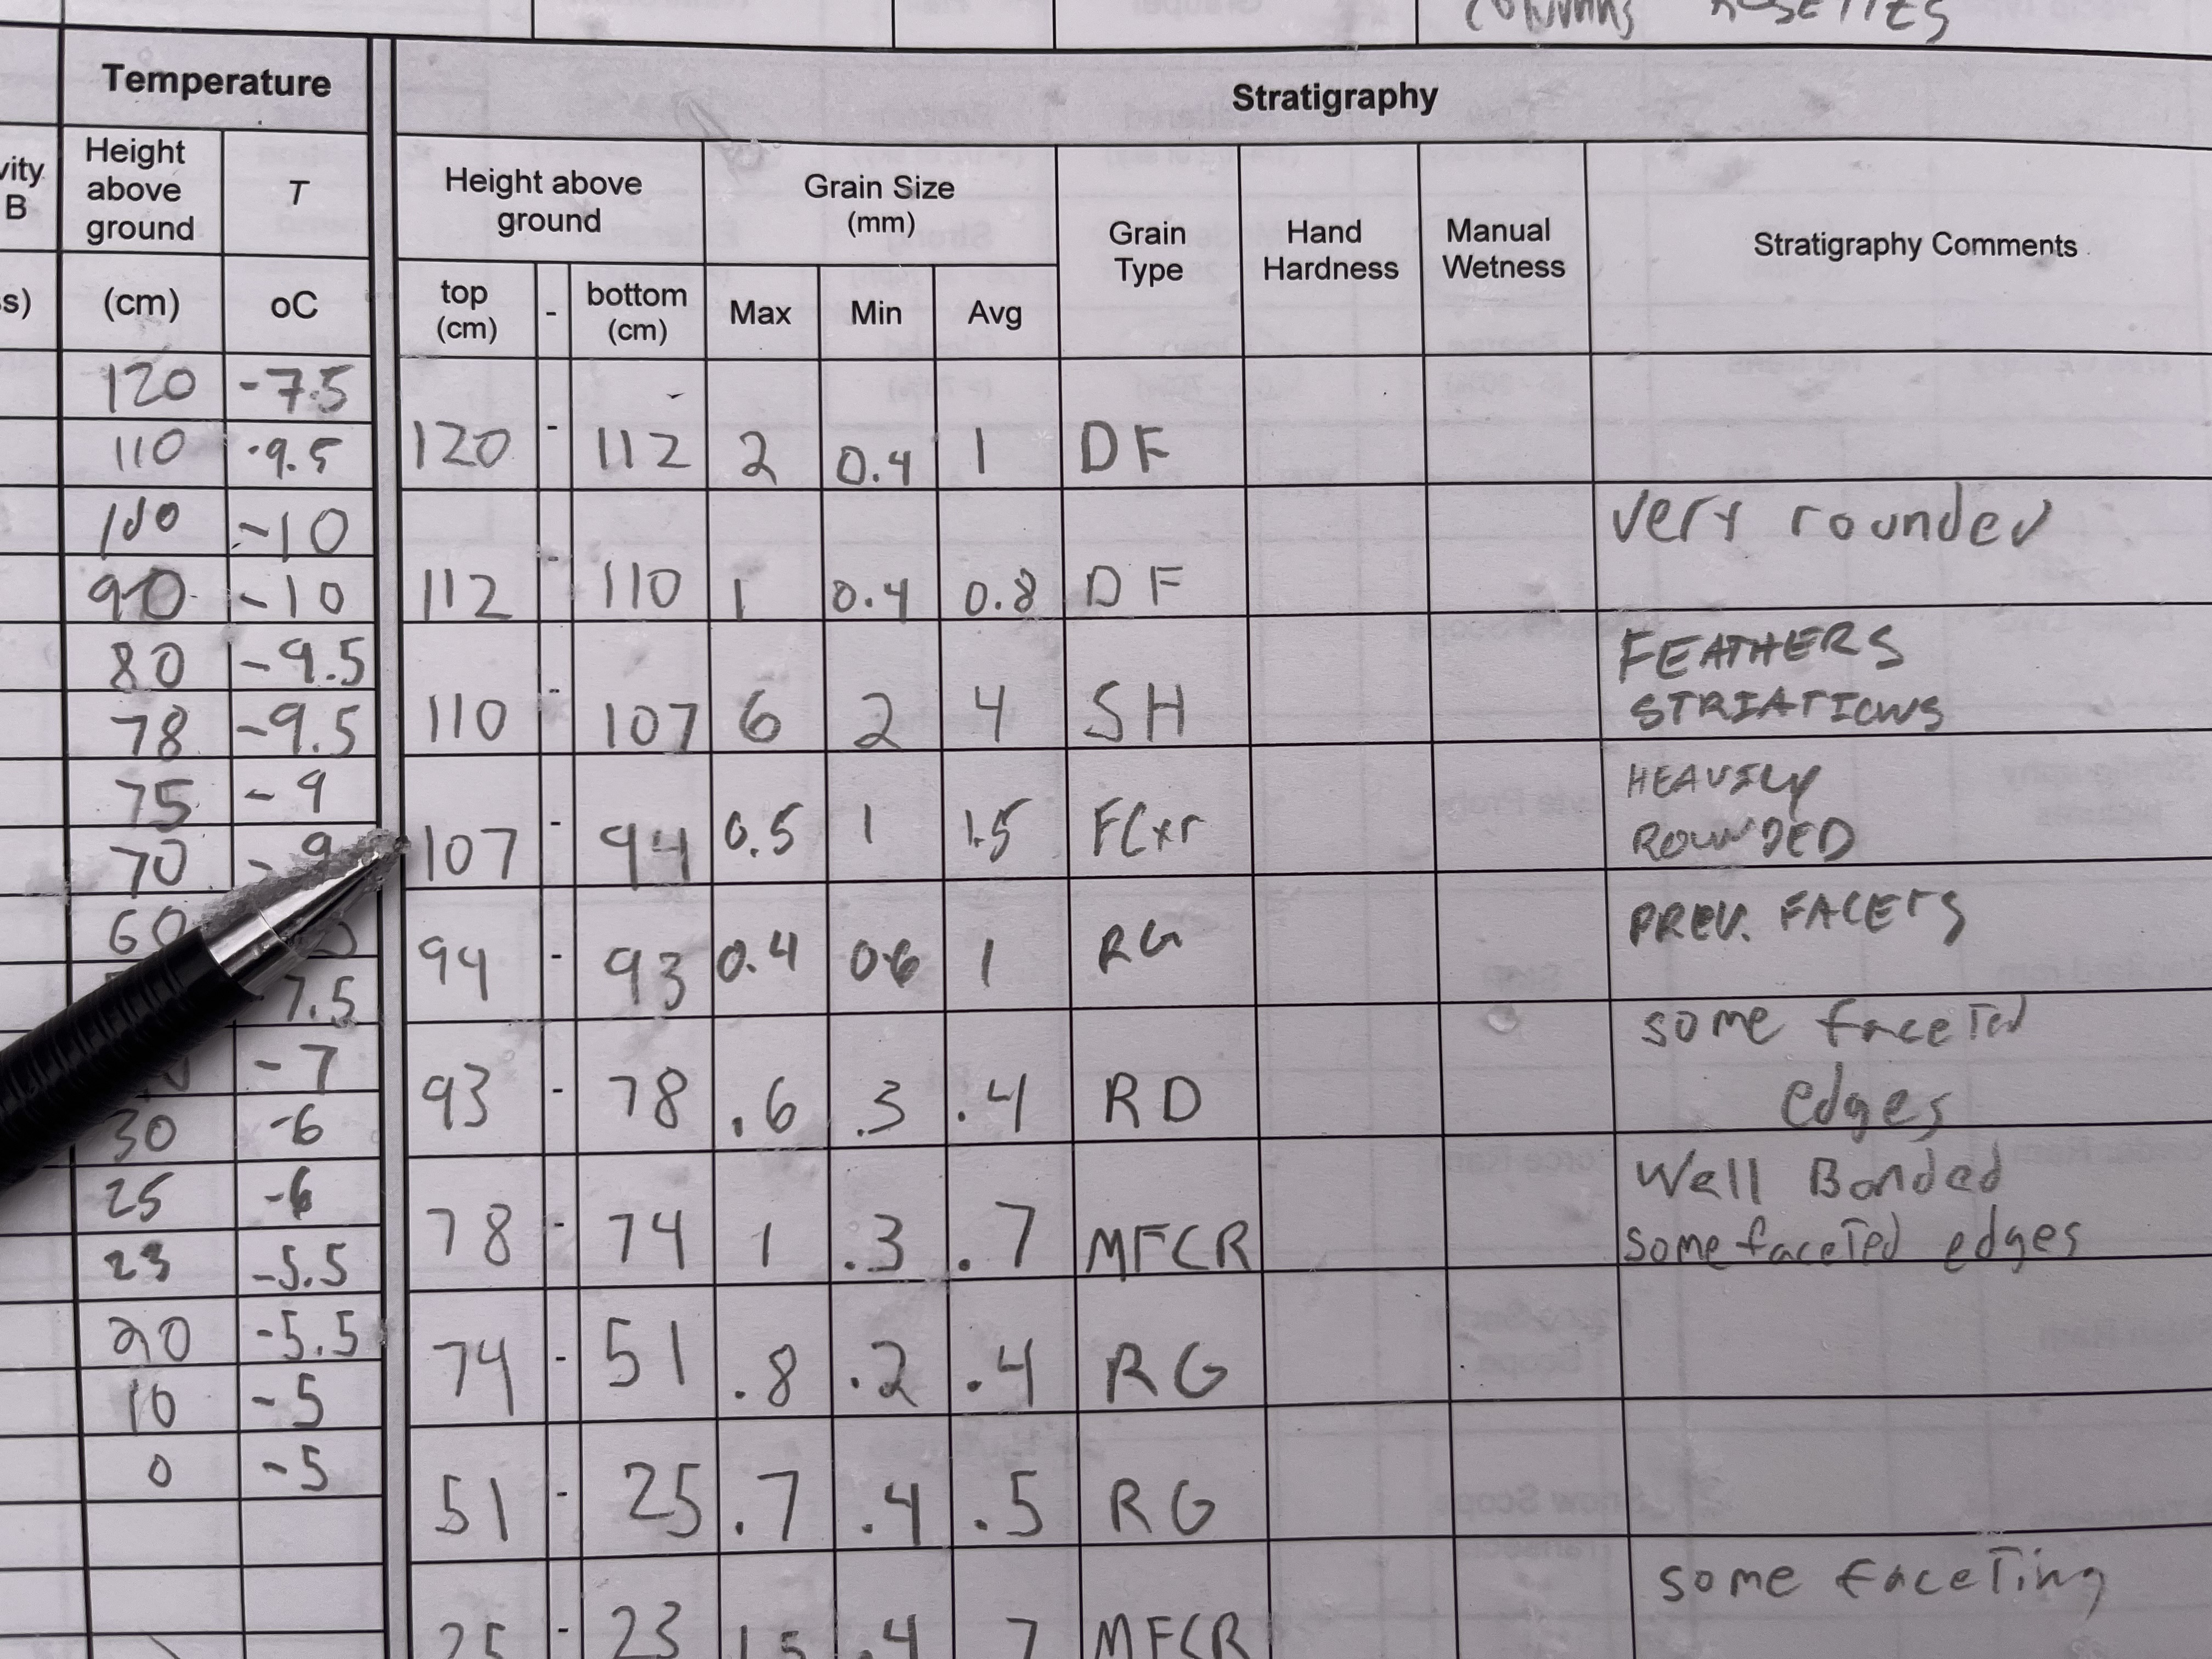 COLUMNS ROSETTES
Temperature
Height above ground (cm)
T
oC
120 -7.5
110 -9.5
100 -10
90 -10
80 -9.5
78 -9.5
75 -9
70 -9
60
-7.5
-7
30 -6
25 -6
23 -5.5
20 -5.5
10 -5
0 -5
Stratigraphy
Height above ground
Grain Size (mm)
Grain Type
Hand Hardness
Manual Wetness
Stratigraphy Comments
top (cm) - bottom (cm) Max Min Avg
120 - 112 2 0.4 1 DF
112 - 110 1 0.4 0.8 DF very rounded
110 - 107 6 2 4 SH FEATHERS
STRIATIONS
107 - 94 0.5 1 1.5 FCxr HEAVILY
ROUNDED
94 - 93 0.4 0.6 1 RG PREV. FACETS
93 - 78 .6 .3 .4 RD some faceted
edges
78 - 74 1 .3 .7 MFCR Well Bonded
some faceted edges
74 - 51 .8 .2 .4 RG
51 - 25 .7 .4 .5 RG
25 - 23 1.5 .4 7 MFCR some faceting